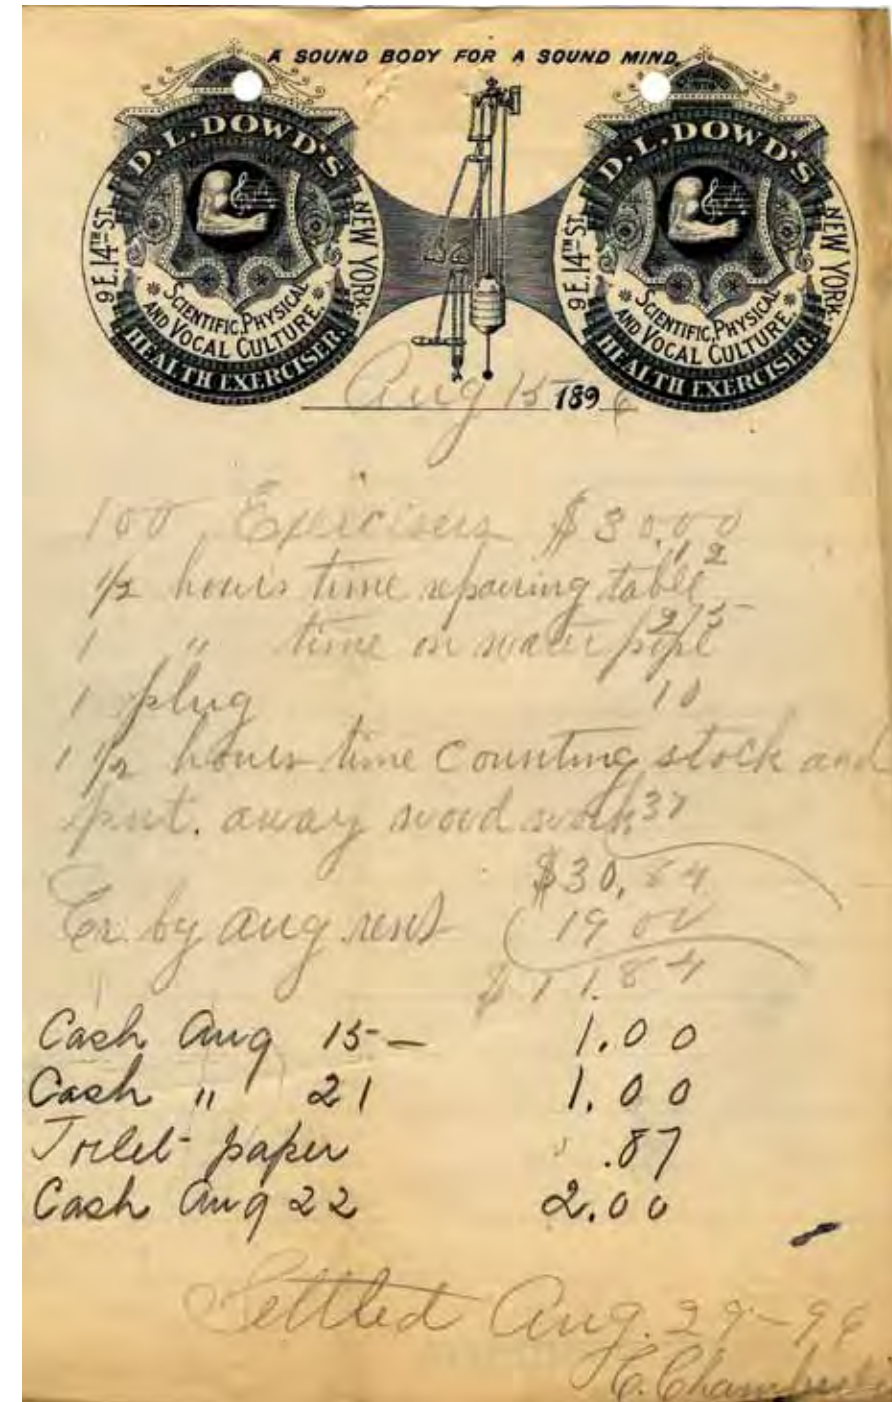 A SOUND BODY FOR A SOUND MIND.
D. L. DOWD'S
9 E. 14TH ST.
NEW YORK.
SCIENTIFIC, PHYSICAL
AND VOCAL CULTURE.
HEALTH EXERCISER.
D. L. DOWD'S
9 E. 14TH ST.
NEW YORK.
SCIENTIFIC, PHYSICAL
AND VOCAL CULTURE.
HEALTH EXERCISER.
Aug 15 1896
100 Exercisers $30.00
1/2 hours time repairing table 12
1 " time on water pipe 25
1 plug 10
1 1/2 hours time counting stock and
put. away wood work 37
$30,84
Cr. by Aug rent 19 00
$11.84
Cash Aug 15 — 1.00
Cash " 21 1.00
Toilet paper .87
Cash Aug 22 2.00
Settled Aug. 29-96